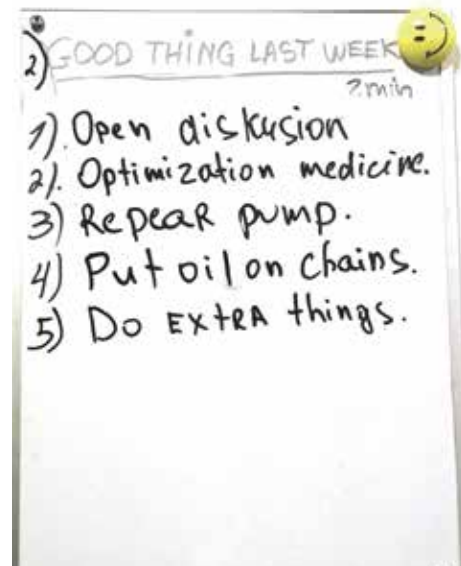 2) GOOD THING LAST WEEK
2 min
1). Open diskusion
2). Optimization medicine.
3) Repear pump.
4) Put oil on chains.
5) Do EXtRA things.